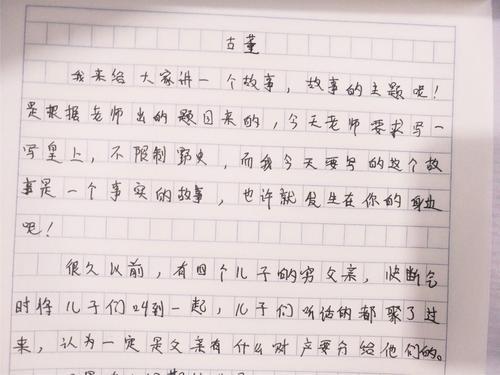 古董
我来给大家讲一个故事，故事的主题呢！
是根据老师出的题目来的，今天老师要求写一
写皇上，不限制野史，而我今天要写的这个故
事是一个事实的故事，也许就发生在你的身边
呢！
很久以前，有四个儿子的穷父亲，快断气
时将儿子们叫到一起，儿子们听话的都聚了过
来，认为一定是父亲有什么财产要分给他们的。